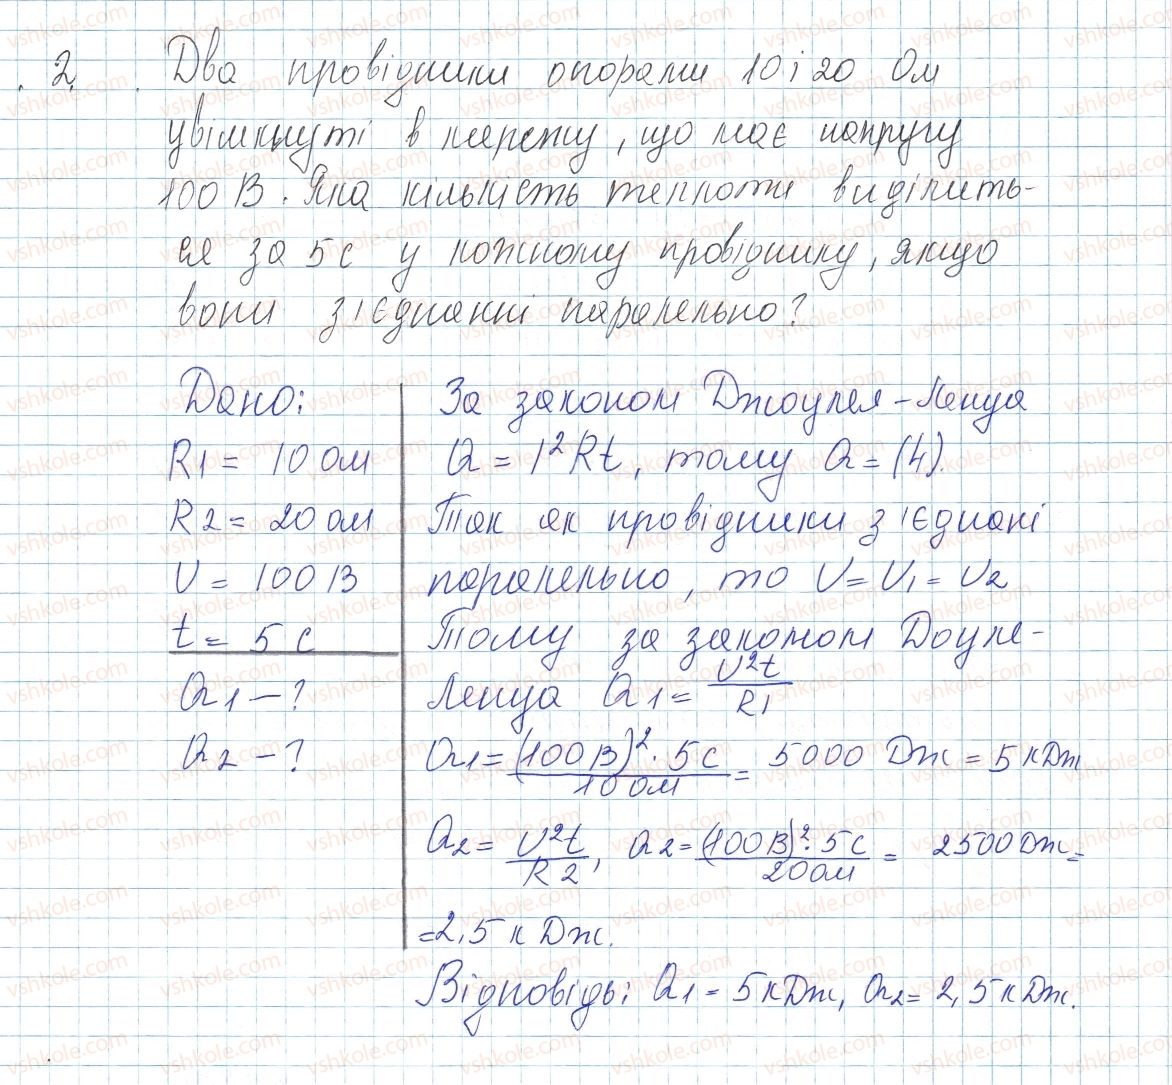 2. Два провідники опорами 10 і 20 Ом
увімкнуті в мережу, що має напругу
100 В. Яка кількість теплоти виділить-
ся за 5 с у кожному провіднику, якщо
вони з'єднанні паралельно?
Дано:
R1 = 10 Ом
R2 = 20 Ом
U = 100 В
t = 5 с
Q1 - ?
Q2 - ?
За законом Джоуля-Ленца
Q = I²Rt, тому Q = (4).
Так як провідники з'єднані
паралельно, то U = U1 = U2
Тому за законом Доуле-
Ленца Q1 = U²t / R1
Q1 = (100 В)² · 5 с / 10 Ом = 5000 Дж = 5 кДж
Q2 = U²t / R2, Q2 = (100 В)² · 5 с / 20 Ом = 2500 Дж =
= 2,5 кДж.
Відповідь: Q1 = 5 кДж, Q2 = 2,5 кДж.
vshkole.com